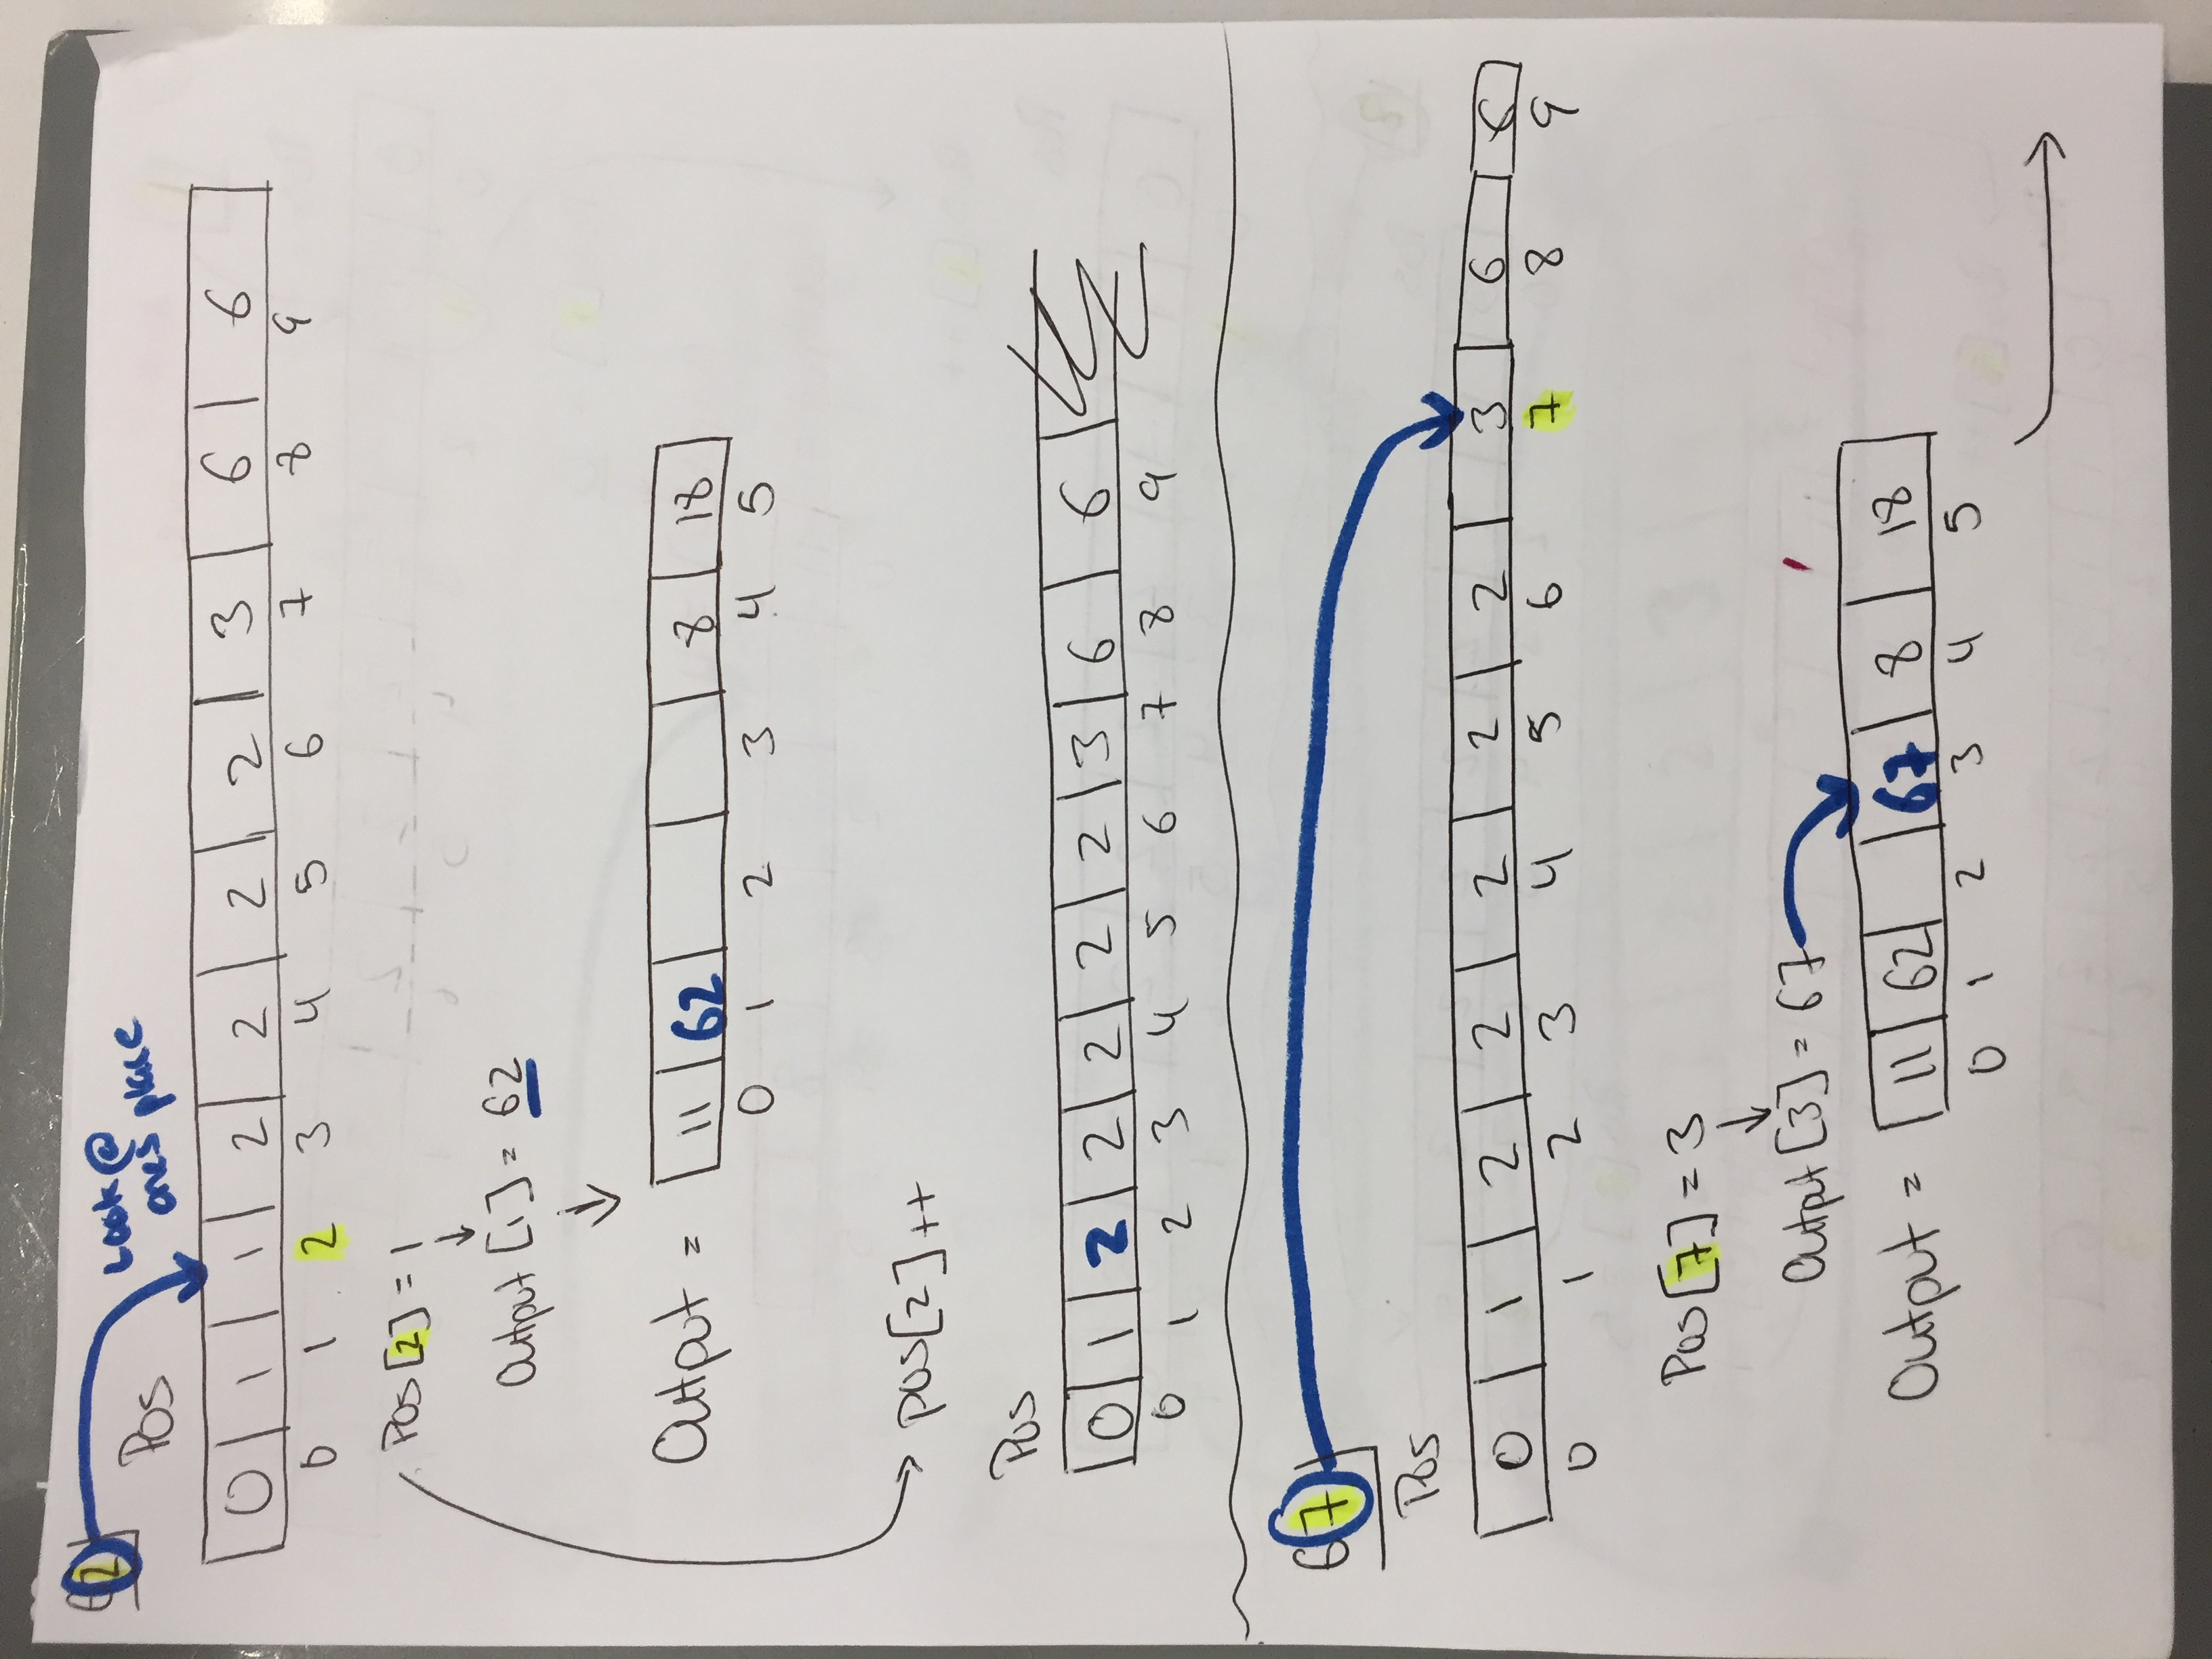 62
Look @
ones place
Pos
0 1 1 2 2 2 2 3 6 6
0 1 2 3 4 5 6 7 8 9
Pos[2] = 1
Output [1] = 62
Output = 11 62 8 18
0 1 2 3 4 5
pos[2]++
Pos
0 1 2 2 2 2 2 3 6 6
0 1 2 3 4 5 6 7 8 9
67
Pos
0 1 2 2 2 2 2 3 6 6
0 1 2 3 4 5 6 7 8 9
Pos[7] = 3
Output [3] = 67
Output = 11 62 67 8 18
0 1 2 3 4 5